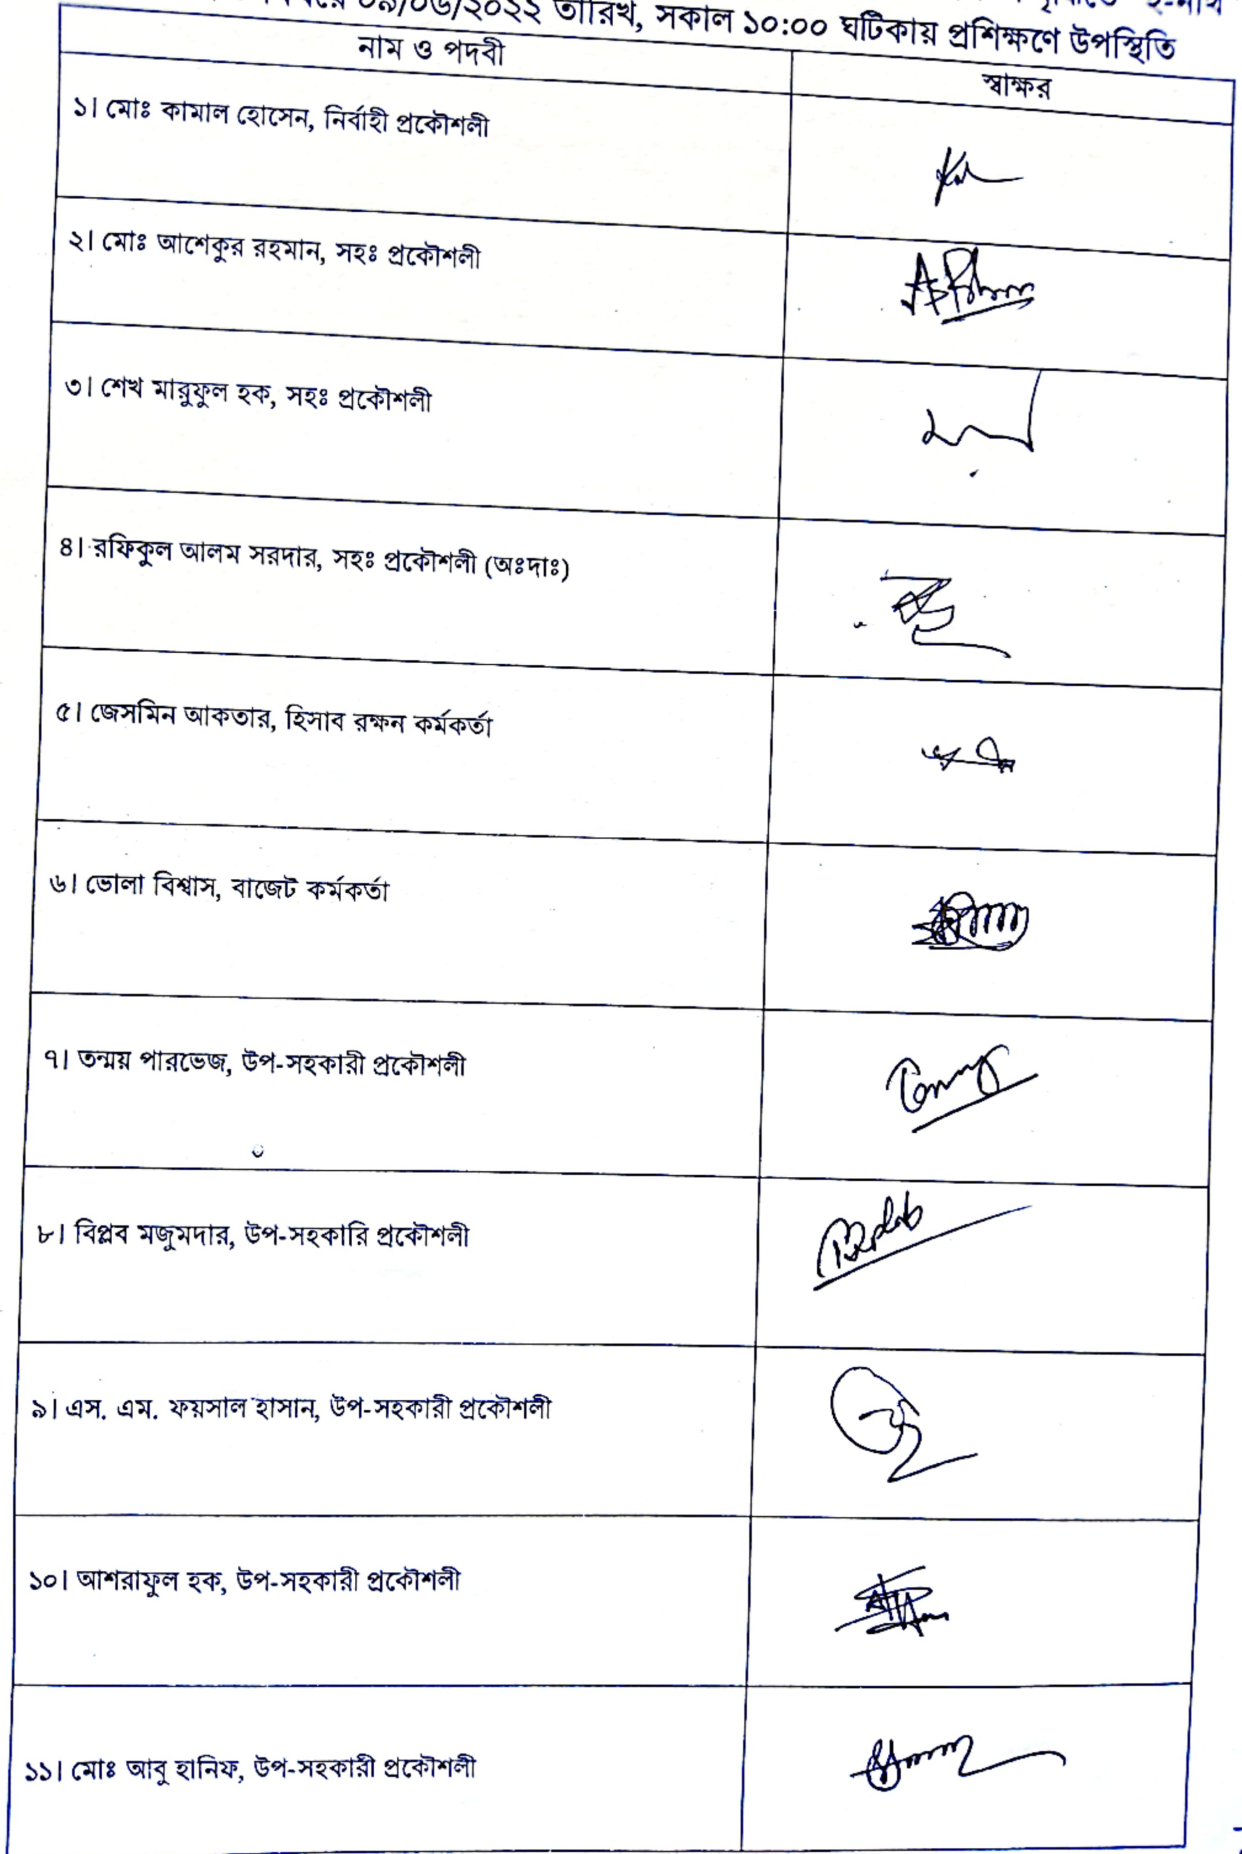 ০৯/০৬/২০২২ তারিখ, সকাল ১০:০০ ঘটিকায় প্রশিক্ষণে উপস্থিতি
নাম ও পদবী
স্বাক্ষর
১। মোঃ কামাল হোসেন, নির্বাহী প্রকৌশলী
২। মোঃ আশেকুর রহমান, সহঃ প্রকৌশলী
৩। শেখ মারুফুল হক, সহঃ প্রকৌশলী
৪। রফিকুল আলম সরদার, সহঃ প্রকৌশলী (অঃদাঃ)
৫। জেসমিন আকতার, হিসাব রক্ষন কর্মকর্তা
৬। ভোলা বিশ্বাস, বাজেট কর্মকর্তা
৭। তন্ময় পারভেজ, উপ-সহকারী প্রকৌশলী
৮। বিপ্লব মজুমদার, উপ-সহকারি প্রকৌশলী
৯। এস. এম. ফয়সাল হাসান, উপ-সহকারী প্রকৌশলী
১০। আশরাফুল হক, উপ-সহকারী প্রকৌশলী
১১। মোঃ আবু হানিফ, উপ-সহকারী প্রকৌশলী